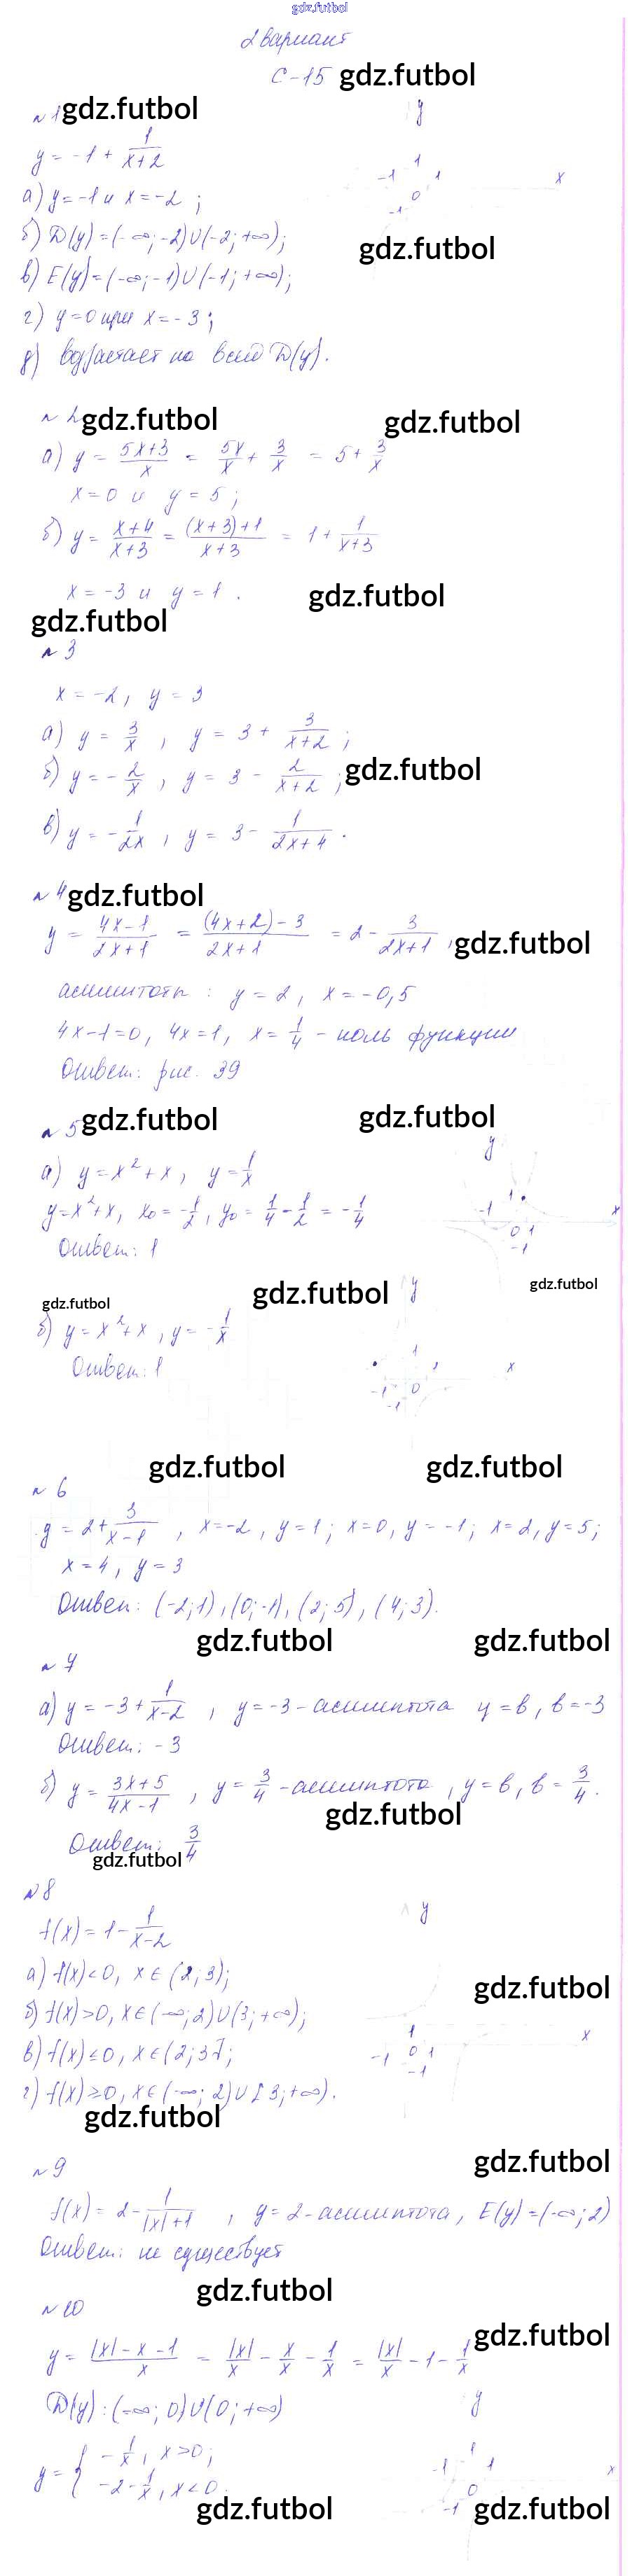 gdz.futbol
2 вариант
С-15 gdz.futbol
№1 gdz.futbol
y = -1 + 1/(x+2)
а) y = -1 и x = -2;
б) D(y) = (-∞; -2)∪(-2; +∞);
gdz.futbol
в) E(y) = (-∞; -1)∪(-1; +∞);
г) y = 0 при x = -3;
д) возрастает на всей D(y).
y
1
-1 1 x
0
-1
№2 gdz.futbol gdz.futbol
а) y = (5x+3)/x = 5x/x + 3/x = 5 + 3/x
x = 0 и y = 5;
б) y = (x+4)/(x+3) = ((x+3)+1)/(x+3) = 1 + 1/(x+3)
x = -3 и y = 1.
gdz.futbol
gdz.futbol
№3
x = -2, y = 3
а) y = 3/x, y = 3 + 3/(x+2);
б) y = -2/x, y = 3 - 2/(x+2); gdz.futbol
в) y = -1/2x, y = 3 - 1/(2x+4).
№4 gdz.futbol
y = (4x-1)/(2x+1) = ((4x+2)-3)/(2x+1) = 2 - 3/(2x+1), gdz.futbol
асимптоты: y = 2, x = -0,5
4x-1=0, 4x=1, x = 1/4 - ноль функции
Ответ: рис. 39
№5 gdz.futbol gdz.futbol
а) y = x²+x, y = 1/x
y=x²+x, x₀ = -1/2, y₀ = 1/4 - 1/2 = -1/4
Ответ: 1
y
1
-1 x
0 1
-1
gdz.futbol gdz.futbol gdz.futbol
б) y = x²+x, y = -1/x
Ответ: 1
y
1
1 x
-1 0
-1
gdz.futbol gdz.futbol
№6
y = 2 + 3/(x-1), x=-2, y=1; x=0, y=-1; x=2, y=5;
x = 4, y = 3
Ответ: (-2;1), (0;-1), (2;5), (4;3).
gdz.futbol gdz.futbol
№7
а) y = -3 + 1/(x-2), y = -3 - асимптота y = b, b = -3
Ответ: -3
б) y = (3x+5)/(4x-1), y = 3/4 - асимптота, y = b, b = 3/4.
gdz.futbol
Ответ: 3/4
gdz.futbol
№8
f(x) = 1 - 1/(x-2)
а) f(x)<0, x∈(2;3);
gdz.futbol
б) f(x)>0, x∈(-∞;2)∪(3;+∞);
в) f(x)≤0, x∈(2;3];
г) f(x)≥0, x∈(-∞;2)∪[3;+∞).
y
1
x
-1 0 1
-1
gdz.futbol
№9 gdz.futbol
f(x) = 2 - 1/(|x|+1), y = 2 - асимптота, E(y) = (-∞;2)
Ответ: не существует
gdz.futbol
№10
gdz.futbol
y = (|x|-x-1)/x = |x|/x - x/x - 1/x = |x|/x - 1 - 1/x
D(y): (-∞;0)∪(0;+∞)
y = { -1/x, x>0;
-2-1/x, x<0.
y
1
-1 1 x
0
-1
gdz.futbol gdz.futbol